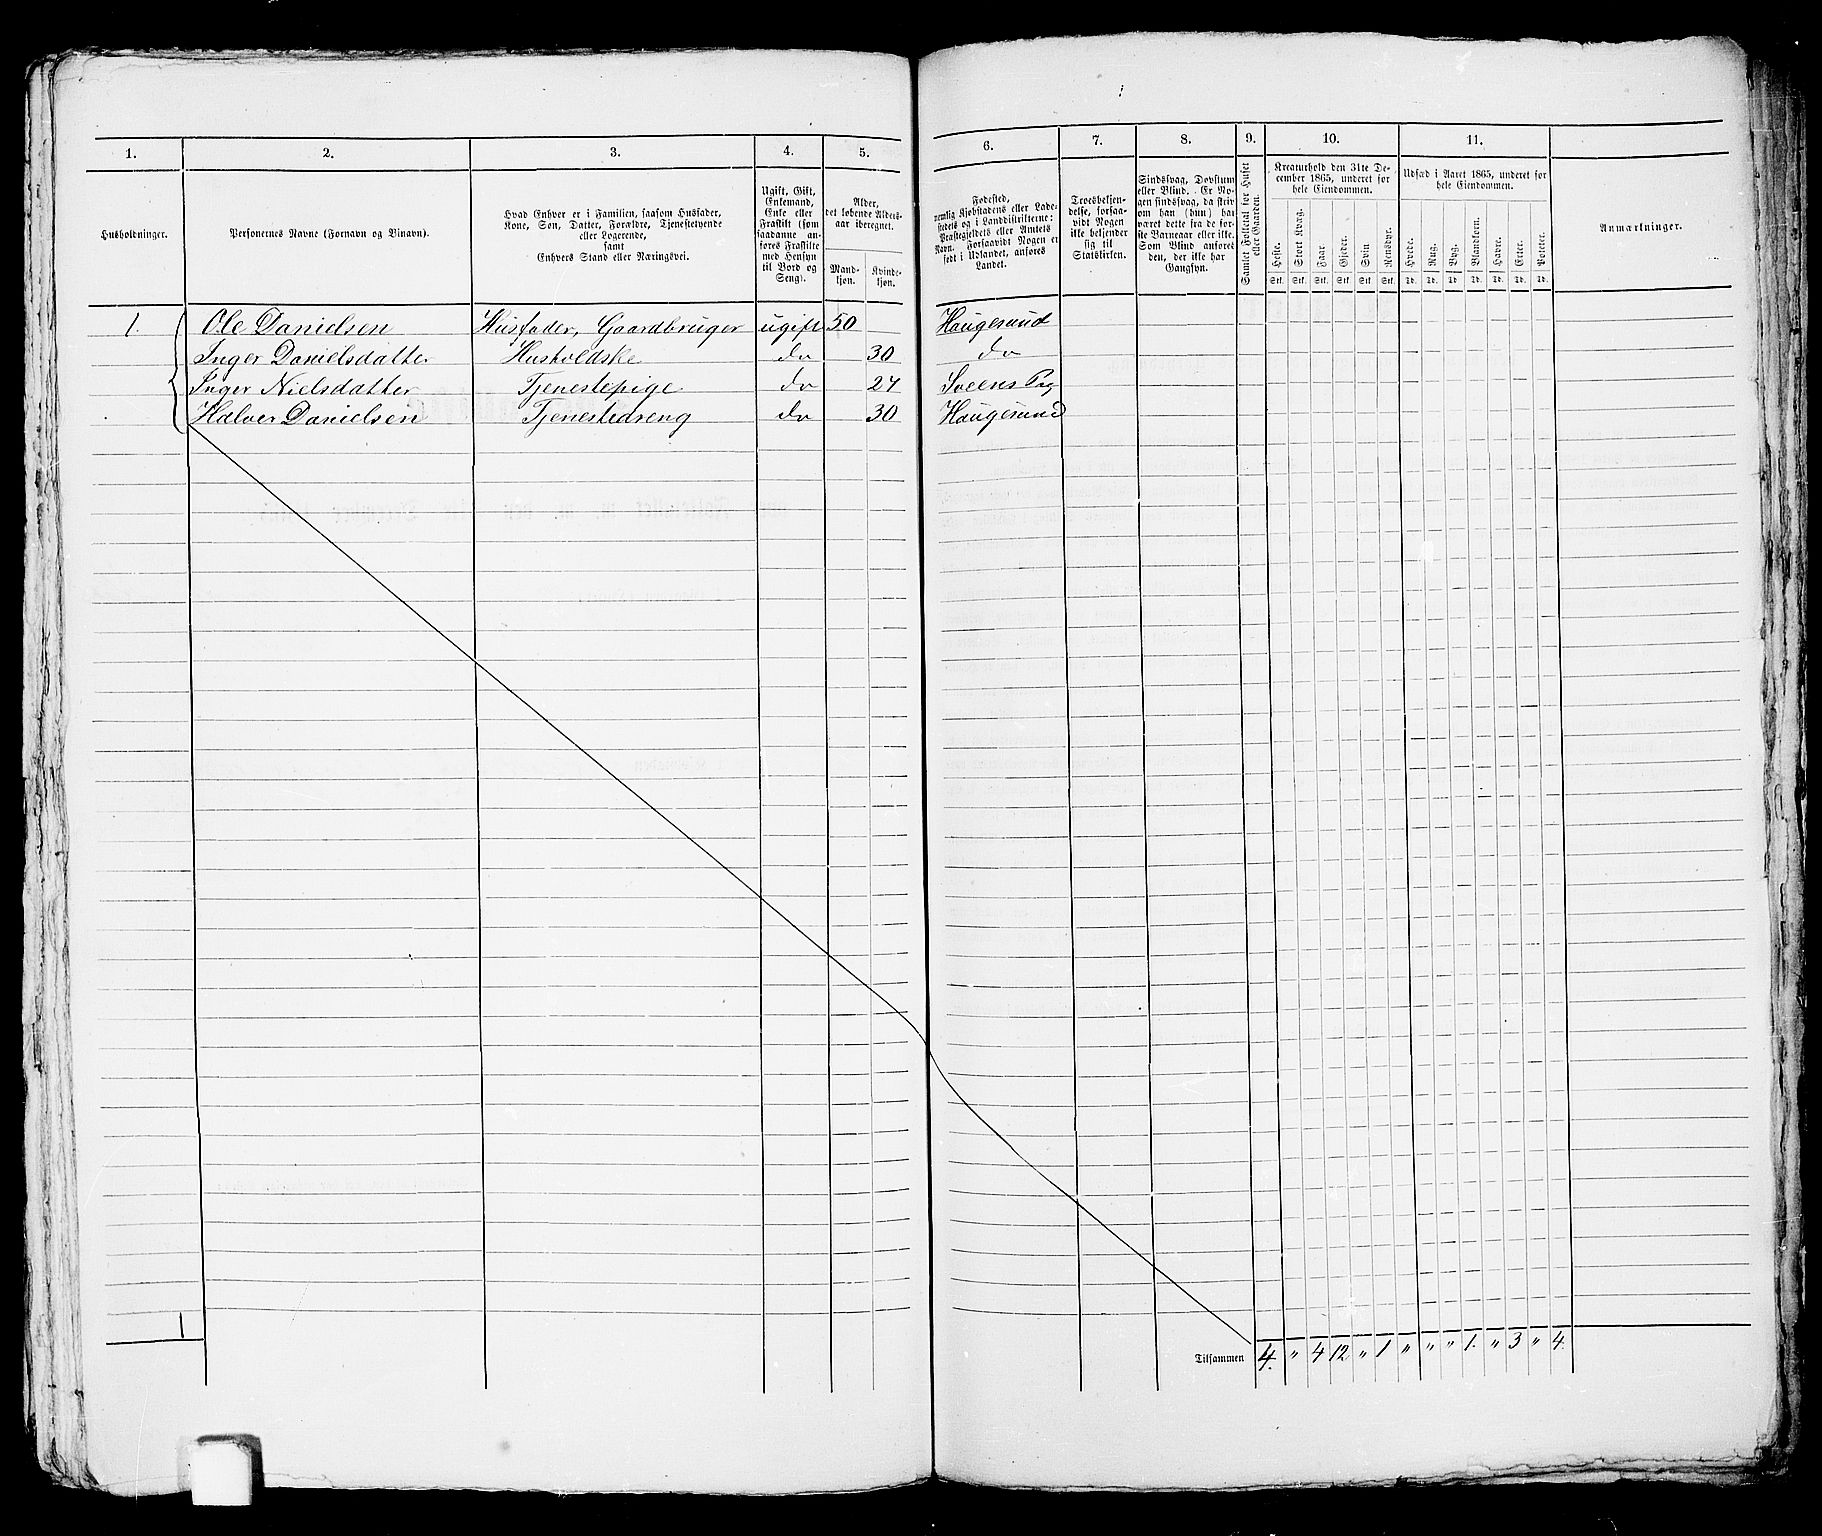 1. 2. 3. 4. 5. 6. 7. 8. 9. 10. 11.
Husholdninger.
Personernes Navne (Fornavn og Binavn).
Hvad Enhver er i Familien, saasom Husfader,
Kone, Søn, Datter, Forældre, Tjenestetyende
eller Logerende,
samt
Enhvers Stand eller Næringsvei.
Ugift, Gift,
Enkemand,
Enke eller
Fraskilt (som
saadanne an-
føres Fraskilte
med Hensyn
til Bord og
Seng).
Alder,
det løbende Alders-
aar iberegnet.
Mand-
kjøn.
Kvinde-
kjøn.
Fødested,
nemlig Kjøbstadens eller Lade-
stedets og i Landdistrikterne:
Præstegjeldets eller Amtets
Navn. Forsaavidt Nogen er
født i Udlandet, anføres
Landet.
Troesbekjen-
delse, forsaa-
vidt Nogen
ikke bekjender
sig til
Statskirken.
Sindssvag, Døvstum
eller Blind. Er No-
gen sindssvag, da skriv
om han (hun) har
været dette fra de før-
ste Barneaar eller ikke.
Som Blind anføres
den, der ikke har
Gangsyn.
Samlet Folketal for Huset
eller Gaarden.
Kreaturhold den 31te De-
cember 1865, anført for
hele Eiendommen.
Heste. Stort Kvæg. Faar. Gjeder. Svin Rensdyr.
Stk. Stk. Stk. Stk. Stk. Stk.
Udsæd i Aaret 1865, anført for
hele Eiendommen.
Hvede. Rug. Byg. Blandkorn. Havre. Erter. Poteter.
Td. Td. Td. Td. Td. Td. Td.
Anmærkninger.
1. Ole Danielsen Husfader, Gaardbruger ugift 50 Haugesund
Inger Danielsdatter Husholdske do 30 do
Inger Nielsdatter Tjenestepige do 27 Sveens Pg
Halver Danielsen Tjenestedreng do 30 Haugesund
1
Tilsammen 4. " 4 12 " 1 " " " 1. " 3 " 4.